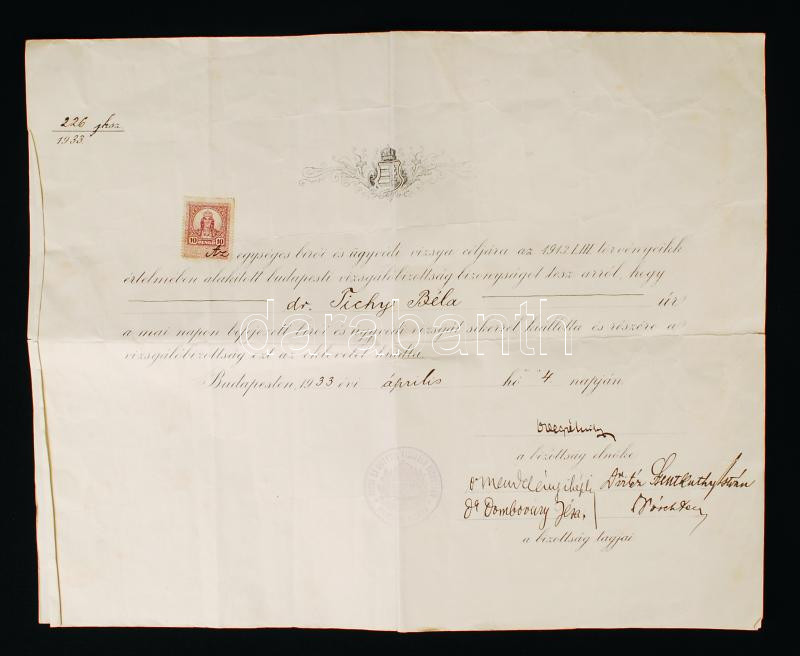 226
1933.
10 10
Az egységes birói és ügyvédi vizsga céljára az 1913. LIII. törvénycikk
értelmében alakított budapesti vizsgálóbizottság bizonyságot tesz arról, hogy
dr. Tichy Béla úr
a mai napon befejezett birói és ügyvédi vizsgát sikerrel kiállotta és részére a
vizsgálóbizottság ezt az oklevelet kiadta.
Budapesten, 1933 évi április hó 4. napján
darabanth
a bizottság elnöke
István
Dr Dombovary Géza
a bizottság tagjai